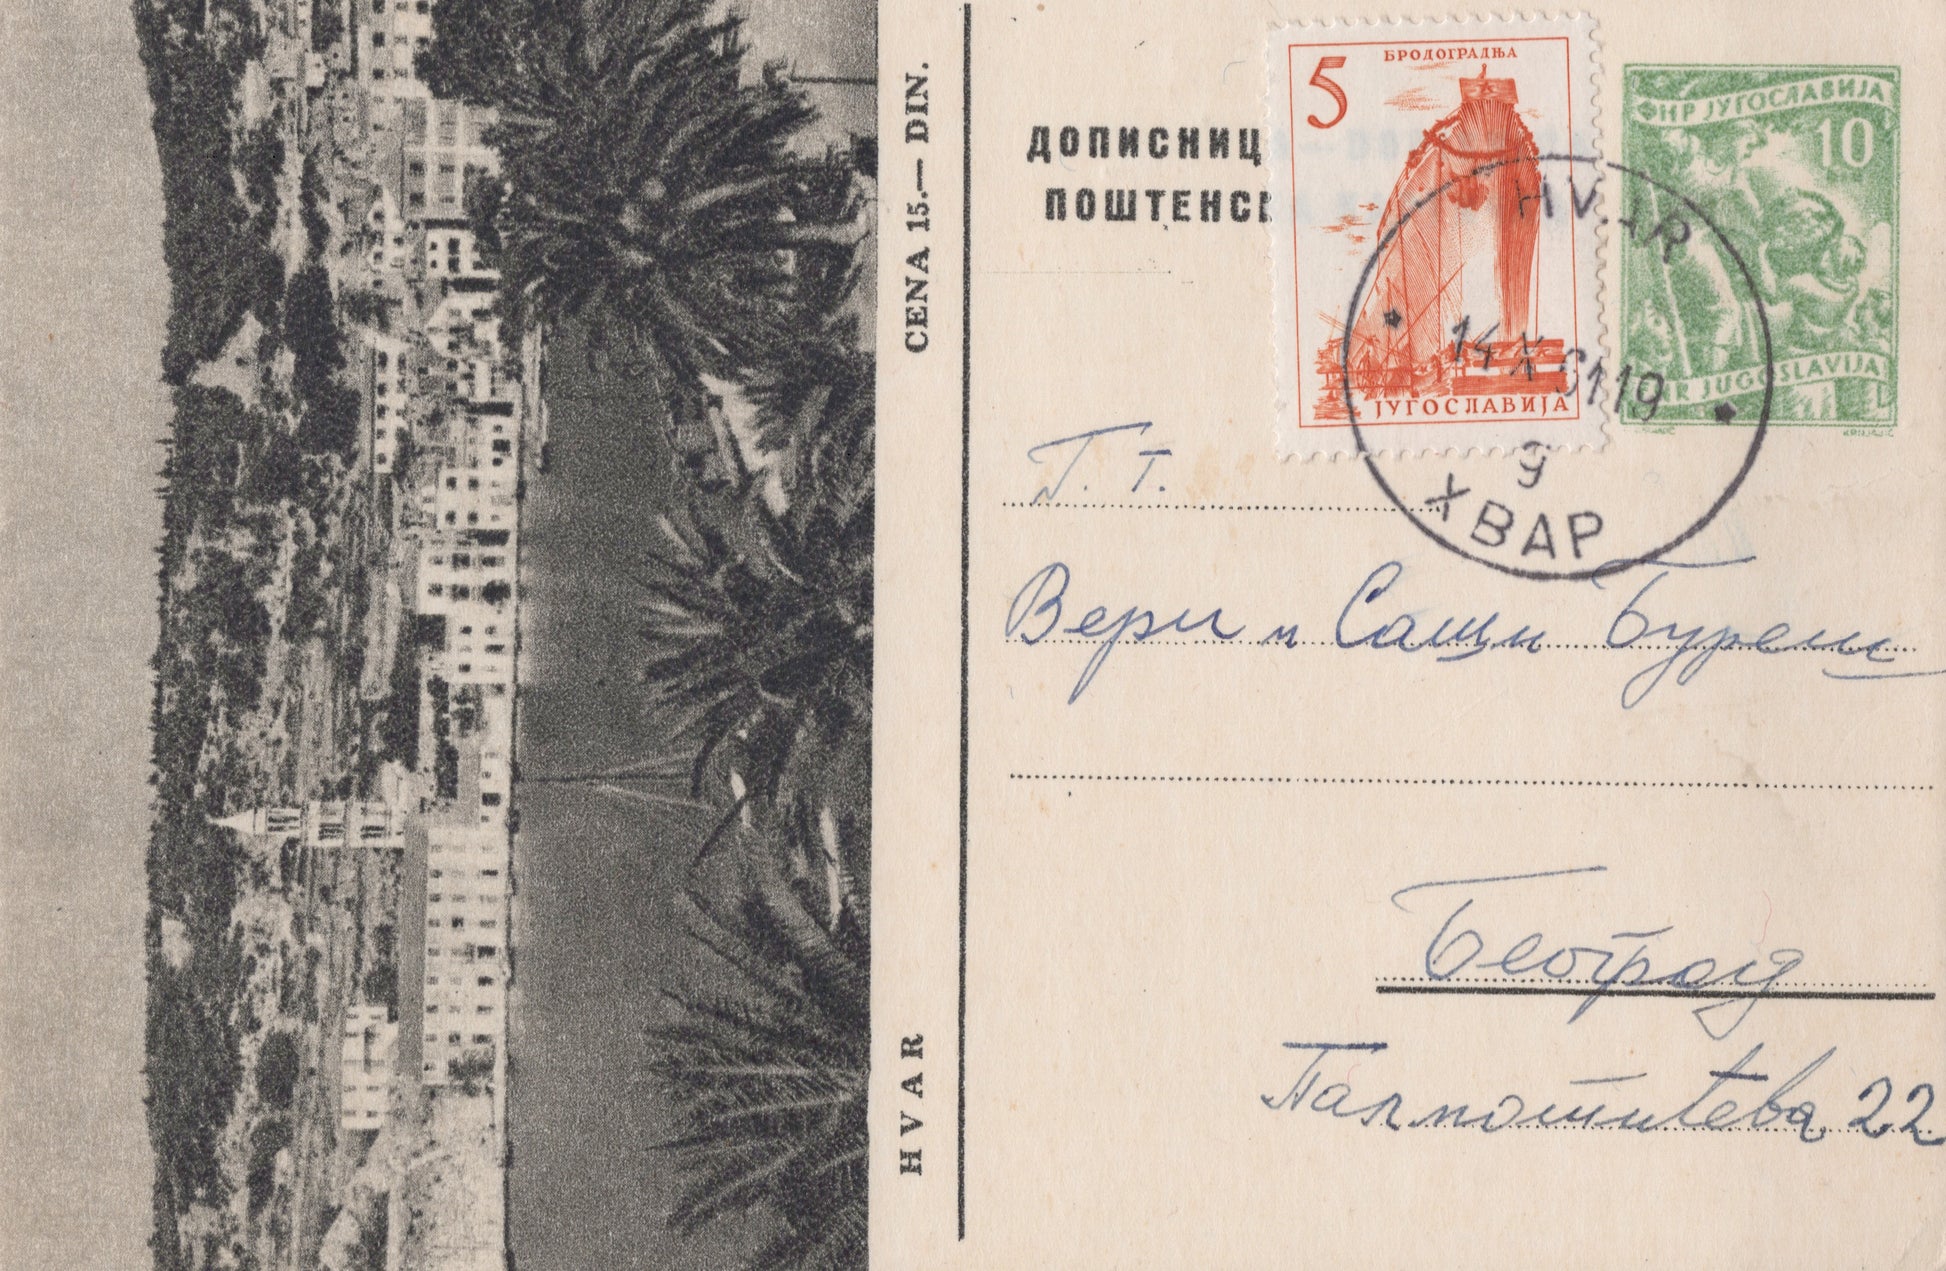 HVAR
CENA 15.— DIN.
ДОПИСНИЦ
ПОШТЕНС
5
БРОДОГРАДЊА
ЈУГОСЛАВИЈА
ФНР ЈУГОСЛАВИЈА
10
FNR JUGOSLAVIJA
HVAR
14 X 61 19
g
ХВАР
Г. т.
Вери и Саши
Београд
Палмотићева 22